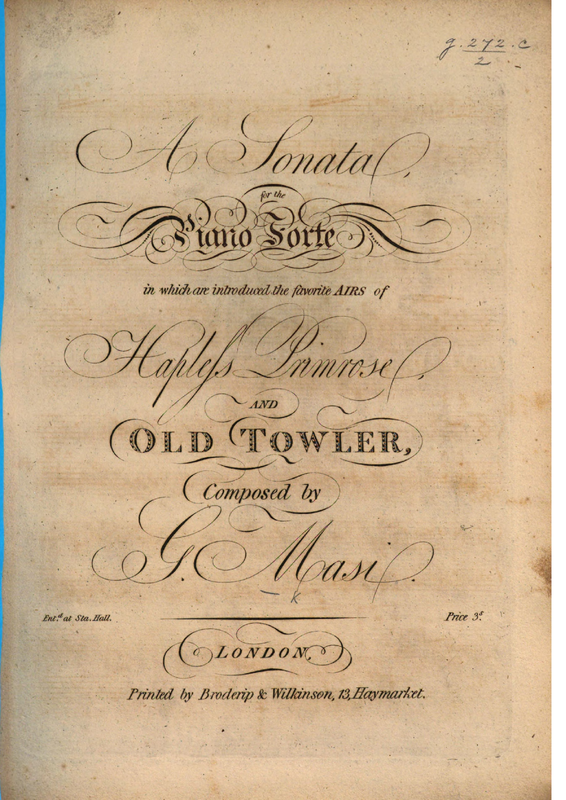 g.272.c
2
A Sonata,
for the
Piano Forte
in which are introduced the favorite AIRS of
Hapleſs Primrose,
AND
OLD TOWLER,
Composed by
G. Masi.
Ent.d at Sta. Hall.
Price 3s.
LONDON,
Printed by Broderip & Wilkinson, 13, Haymarket.